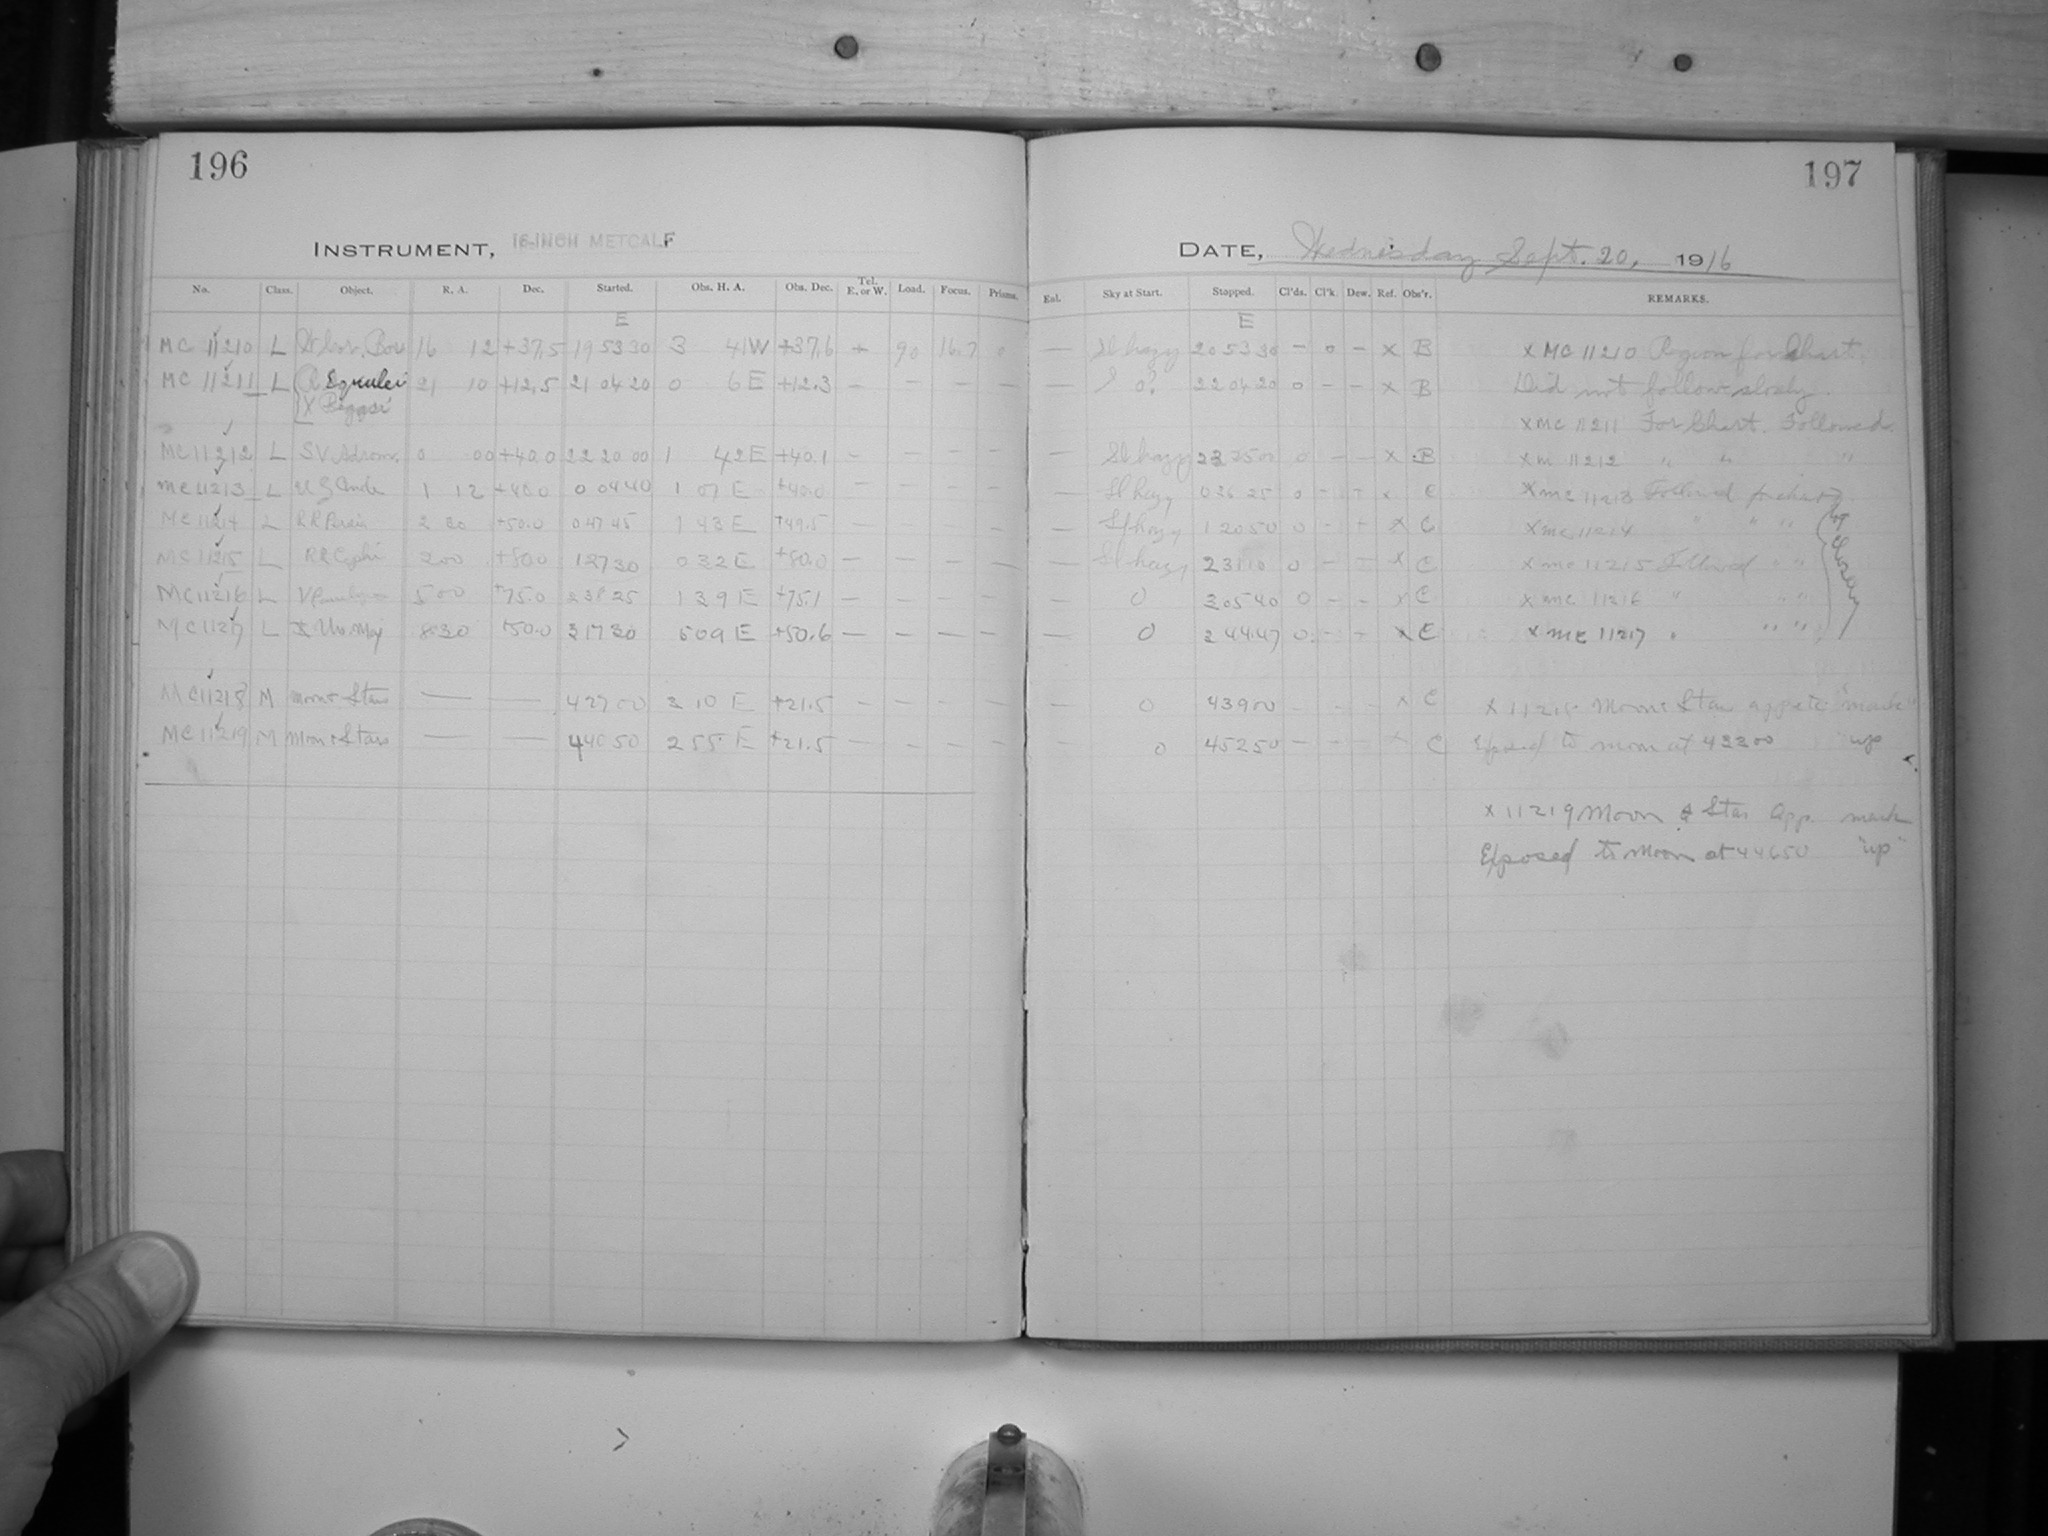 196
197
INSTRUMENT, 16-INCH METCALF
DATE, Wednesday Sept. 20, 1916
No. Class. Object. R. A. Dec. Started. Obs. H. A. Obs. Dec. Tel. E. or W. Load. Focus. Prisms. Eal. Sky at Start. Stopped. Cl'ds. Cl'k. Dew. Ref. Obs'r. REMARKS.
E E
MC 11210 L 16 12 +37.5 19 53 30 3 41W +37.6 + 90 16.7 0 — Sl hazy 20 53 30 – 0 – x B x MC 11210 Region for Chart.
MC 11211 L R Equulei 21 10 +12.5 21 04 20 0 6 E +12.3 – – – – — 0? 22 04 20 0 – – x B Did not follow closely.
X Pegasi x MC 11211 For Chart. Followed.
MC 11212 L SV Androm. 0 00 +40.0 22 20 00 1 42 E +40.1 – – – – — Sl hazy 23 25 00 0 – – x B x m 11212 " " "
MC 11213 L 1 12 +40.0 0 04 40 1 07 E +40.0 – – – – — Sl hazy 0 36 25 0 – – x C x MC 11213 Followed for chart
MC 11214 L RR Persei 2 20 +50.0 0 47 45 1 43 E +49.5 – – – – — Sl hazy 1 20 50 0 – – x C x MC 11214 " " "
MC 11215 L RR Cephi 2 00 +80.0 1 27 30 0 32 E +80.0 – – – – — Sl hazy 2 31 10 0 – – x C x MC 11215 Followed " "
MC 11216 L 5 00 +75.0 1 39 E +75.1 – – – – — 0 3 05 40 0 – – x C x MC 11216 " " "
MC 11217 L X Urs Maj 8 30 +50.0 3 17 30 5 09 E +50.6 – – – – — 0 3 44 47 0 – – x C x MC 11217 " " "
closely
MC 11218 M Moon & Stars — — 4 27 00 3 10 E +21.5 – – – – — 0 4 39 00 – – – x C x 11218 Moon & Star "mark
MC 11219 M Moon & Stars — — 4 40 50 2 55 E +21.5 – – – – — 0 4 52 50 – – – x C Exposed to moon at 4 33 00 up
x 11219 Moon & Star App. mark
Exposed to Moon at 4 46 50 "up"